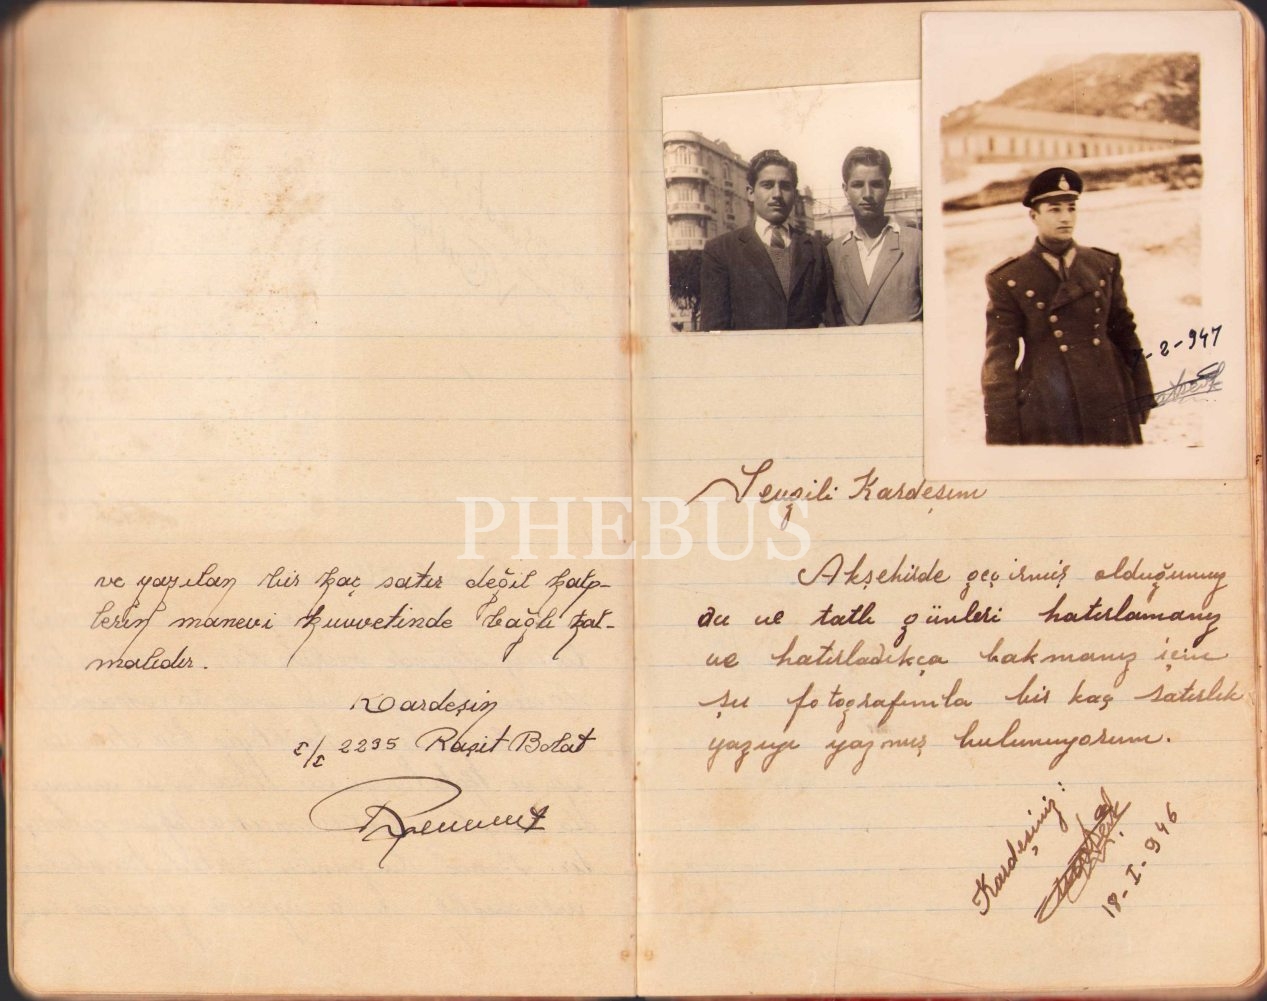 ve yazılan bir kaç satır değil kalp-
lerin manevi kuvvetinde bağlı kal-
malıdır.
Kardeşin
I/I 2295 Raşit Bolat
PHEBUS
7-2-947
Sevgili Kardeşim
Akşehirde geçirmiş olduğumuz
acı ve tatlı günleri hatırlamanız
ve hatırladıkça bakmanız için
şu fotoğrafımla bir kaç satırlık
yazıyı yazmış bulunuyorum.
Kardeşiniz:
18-I-946